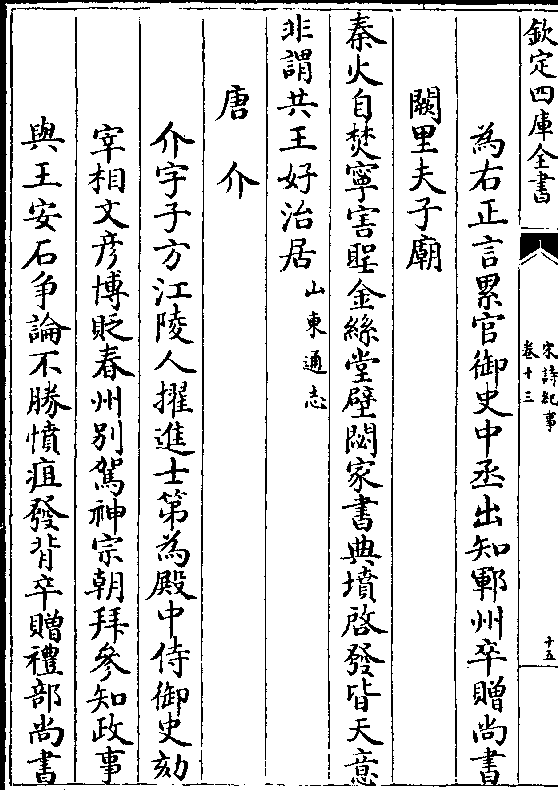 欽定四庫全書
宋詩紀事
卷十三
十五
為右正言累官御史中丞出知鄆州卒贈尚書
闕里夫子廟
秦火自焚寧害聖金絲堂壁閟家書典墳啓發皆天意
非謂共王好治居山東通志
唐介
介字子方江陵人擢進士第為殿中侍御史劾
宰相文彦博貶春州别駕神宗朝拜參知政事
與王安石争論不勝憤疽發背卒贈禮部尚書